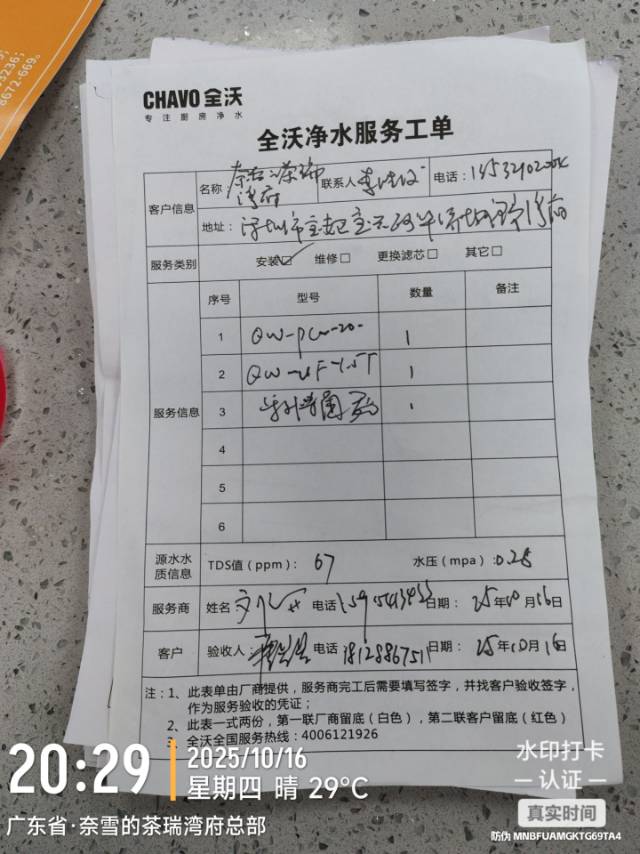 3236;
8672-669。
CHAVO 全沃
专注厨房净水
全沃净水服务工单
客户信息 名称 联系人 电话：
地址：深圳市宝
服务类别 安装☑ 维修□ 更换滤芯□ 其它□
服务信息 序号 型号 数量 备注
1 QW-PCW-20- 1
2 QW-UF-1.5T 1
3 1
4
5
6
源水水质信息 TDS值（ppm）：67 水压（mpa）：0.28
服务商 姓名 电话 日期：25年10月16日
客户 验收人 电话 18128867511 日期：25年10月16日
注：1、此表单由厂商提供，服务商完工后需要填写签字，并找客户验收签字，
作为服务验收的凭证；
2、此表一式两份，第一联厂商留底（白色），第二联客户留底（红色）
3、全沃全国服务热线：4006121926
20:29 2025/10/16
星期四 晴 29℃
广东省·奈雪的茶瑞湾府总部
水印打卡
认证
真实时间
防伪 MNBFUAMGKTG69TA4